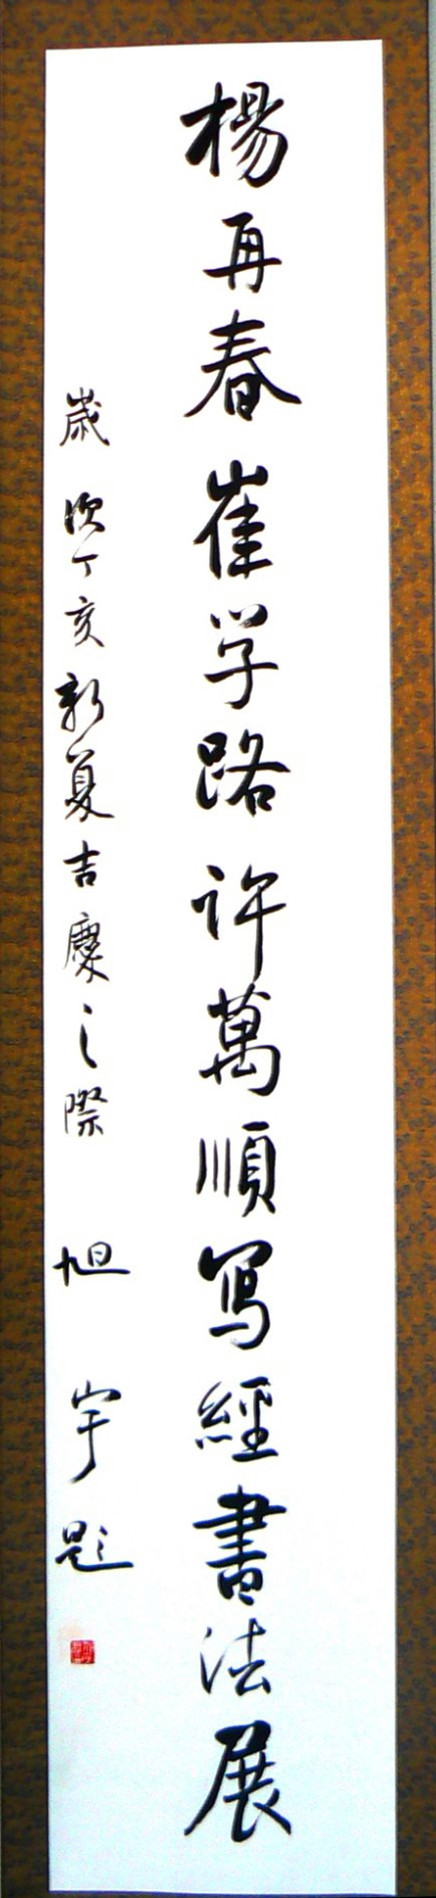 楊再春崔学路许萬順写經書法展
歲次丁亥新夏吉慶之際 旭宇題